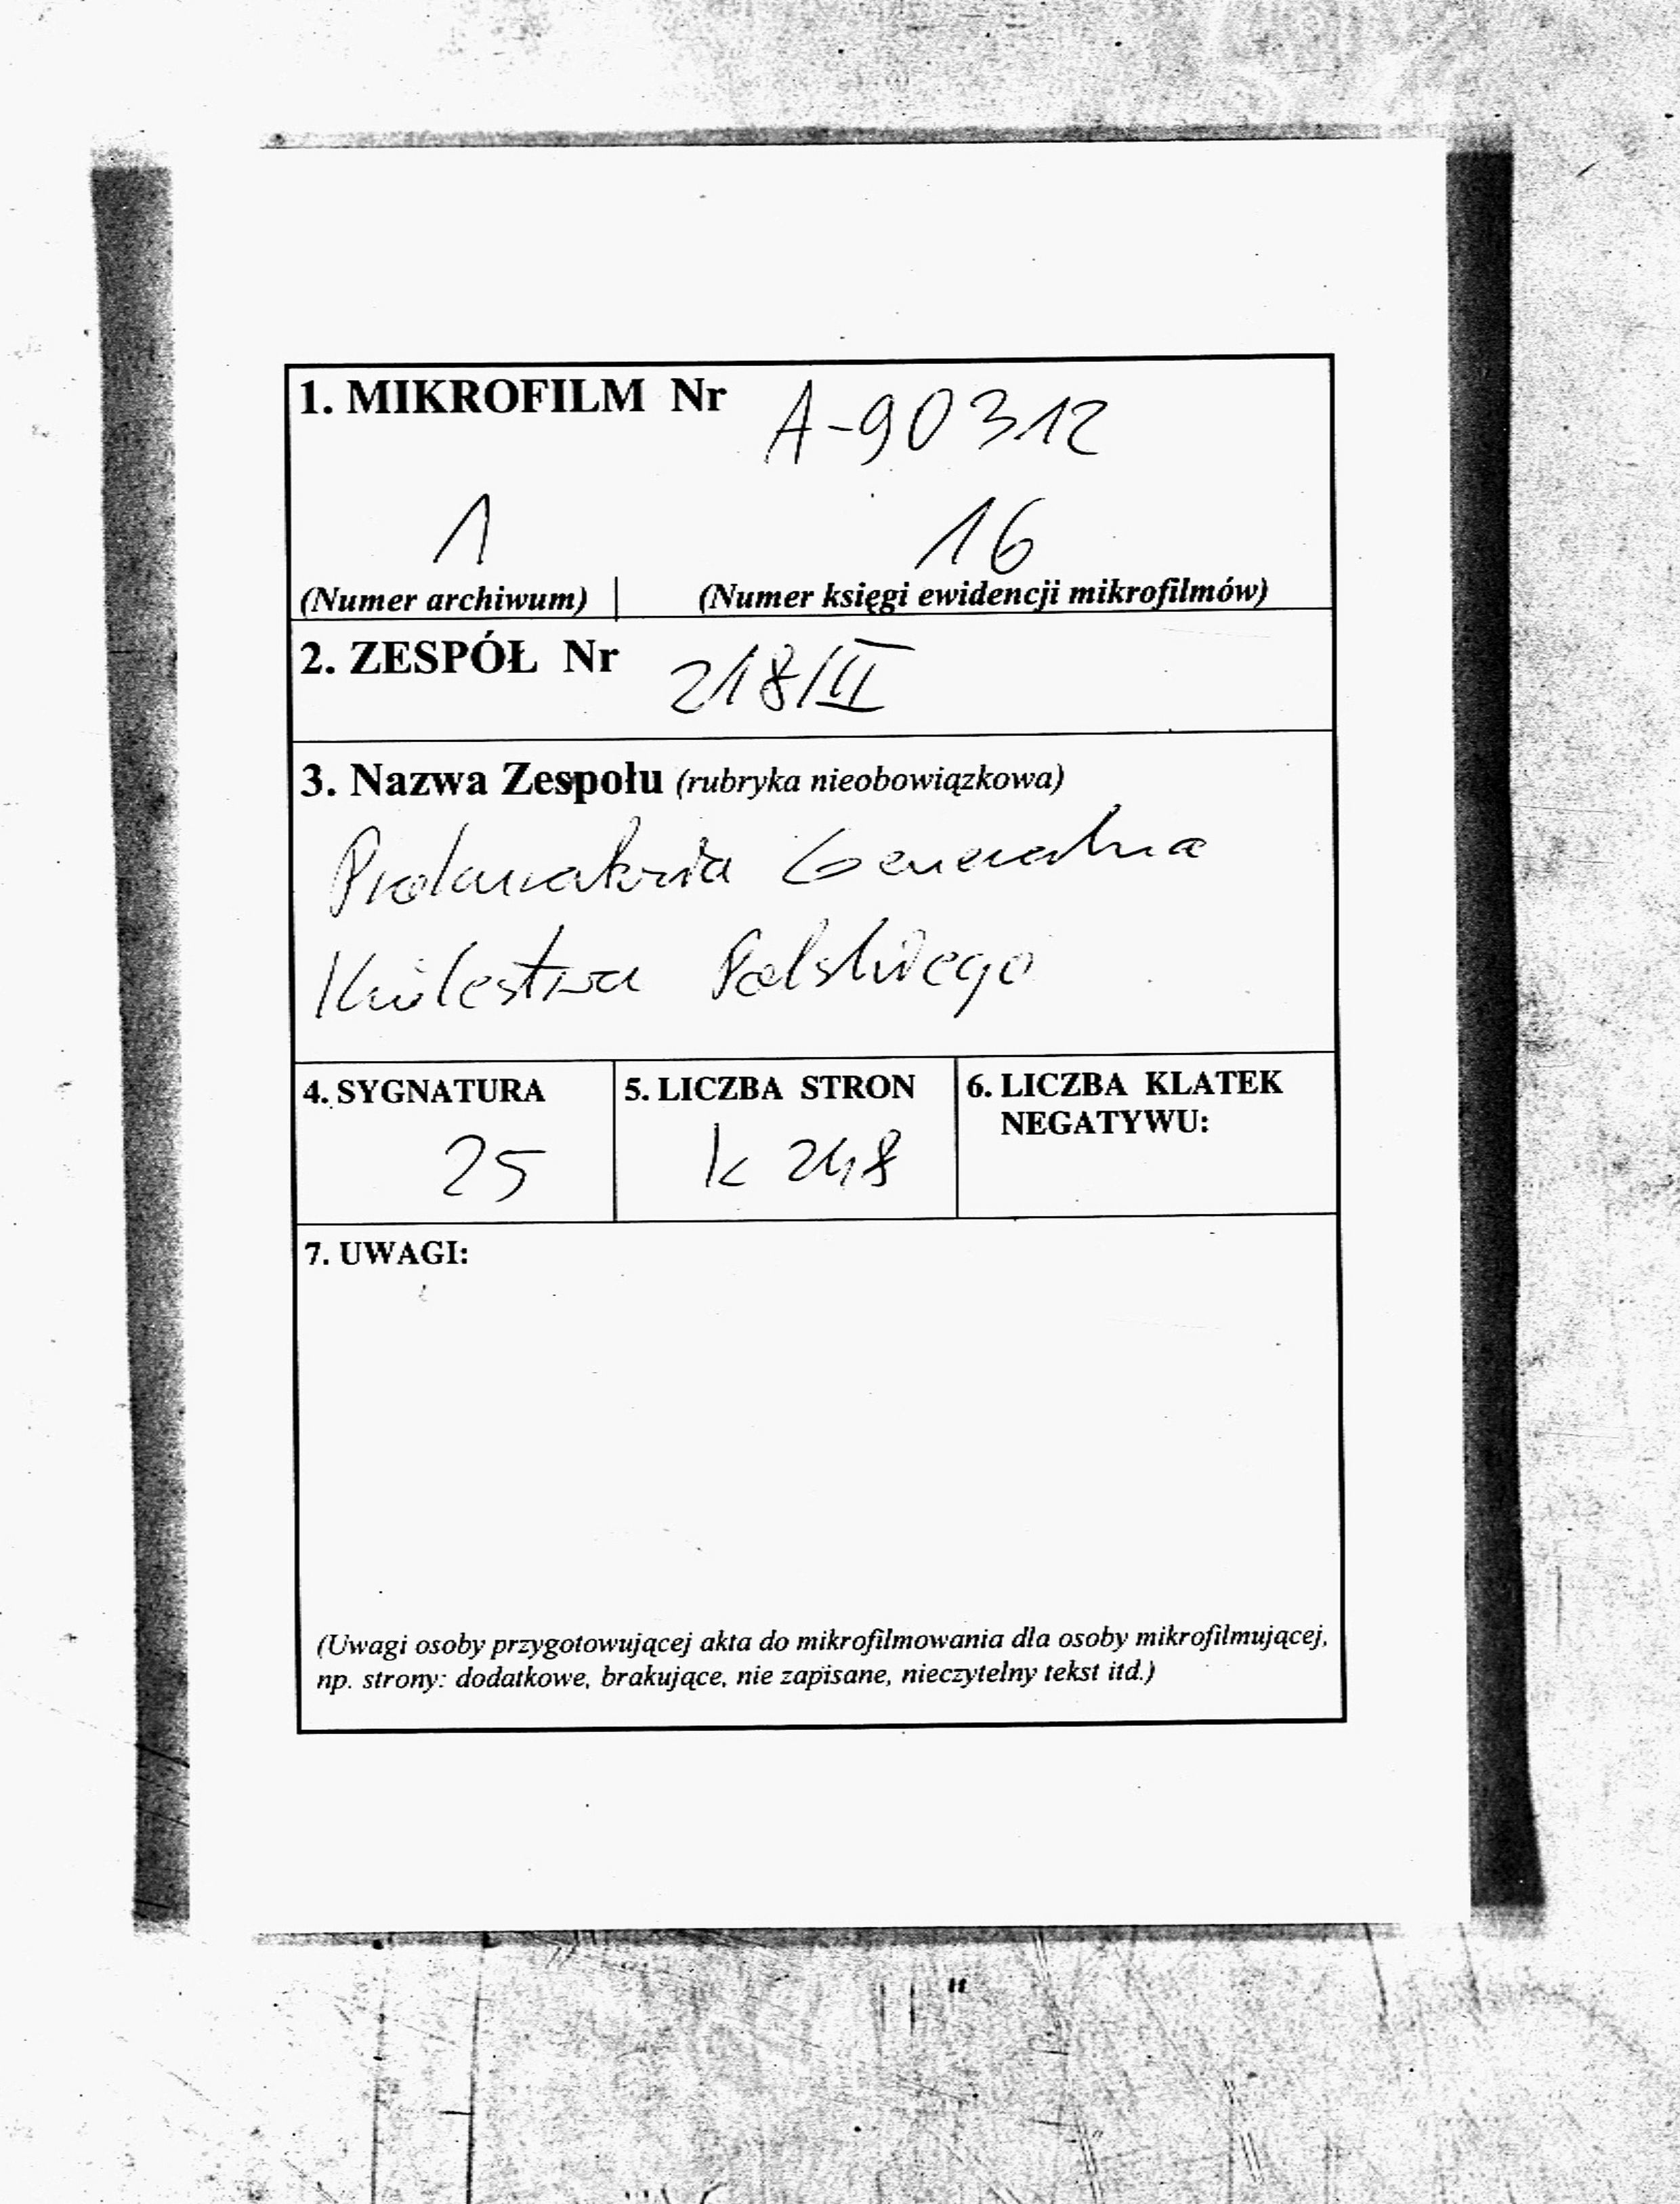 1. MIKROFILM Nr A-90312
1 16
(Numer archiwum) | (Numer księgi ewidencji mikrofilmów)
2. ZESPÓŁ Nr 218/III
3. Nazwa Zespołu (rubryka nieobowiązkowa)
Prokuratoria Generalna
Królestwa Polskiego
4. SYGNATURA 5. LICZBA STRON 6. LICZBA KLATEK
NEGATYWU:
25 k 248
7. UWAGI:
(Uwagi osoby przygotowującej akta do mikrofilmowania dla osoby mikrofilmującej,
np. strony: dodatkowe, brakujące, nie zapisane, nieczytelny tekst itd.)